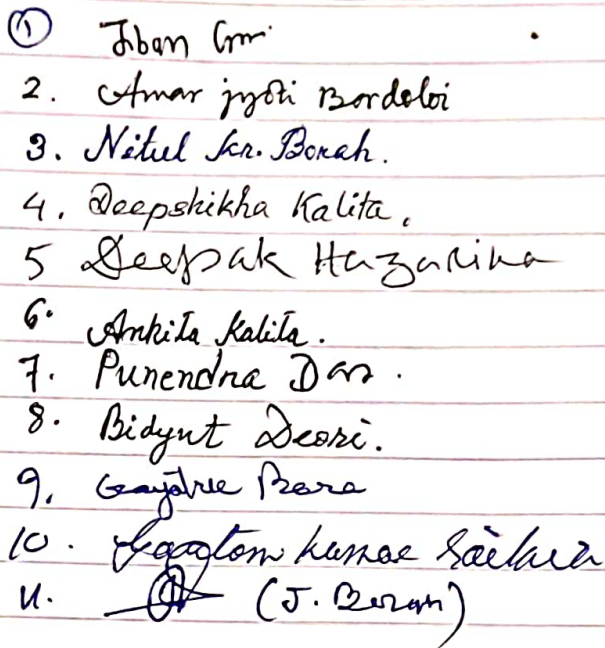 ① Jiban
2. Amar jyoti Bordoloi
3. Nitul kr. Borah.
4. Deepshikha Kalita.
5 Deepak Hazarika
6. Ankita Kalita.
7. Punendra Das.
8. Bidyut Deori.
9. Gayatree Bora
10. kumar Saikia
11. (J. Borah)